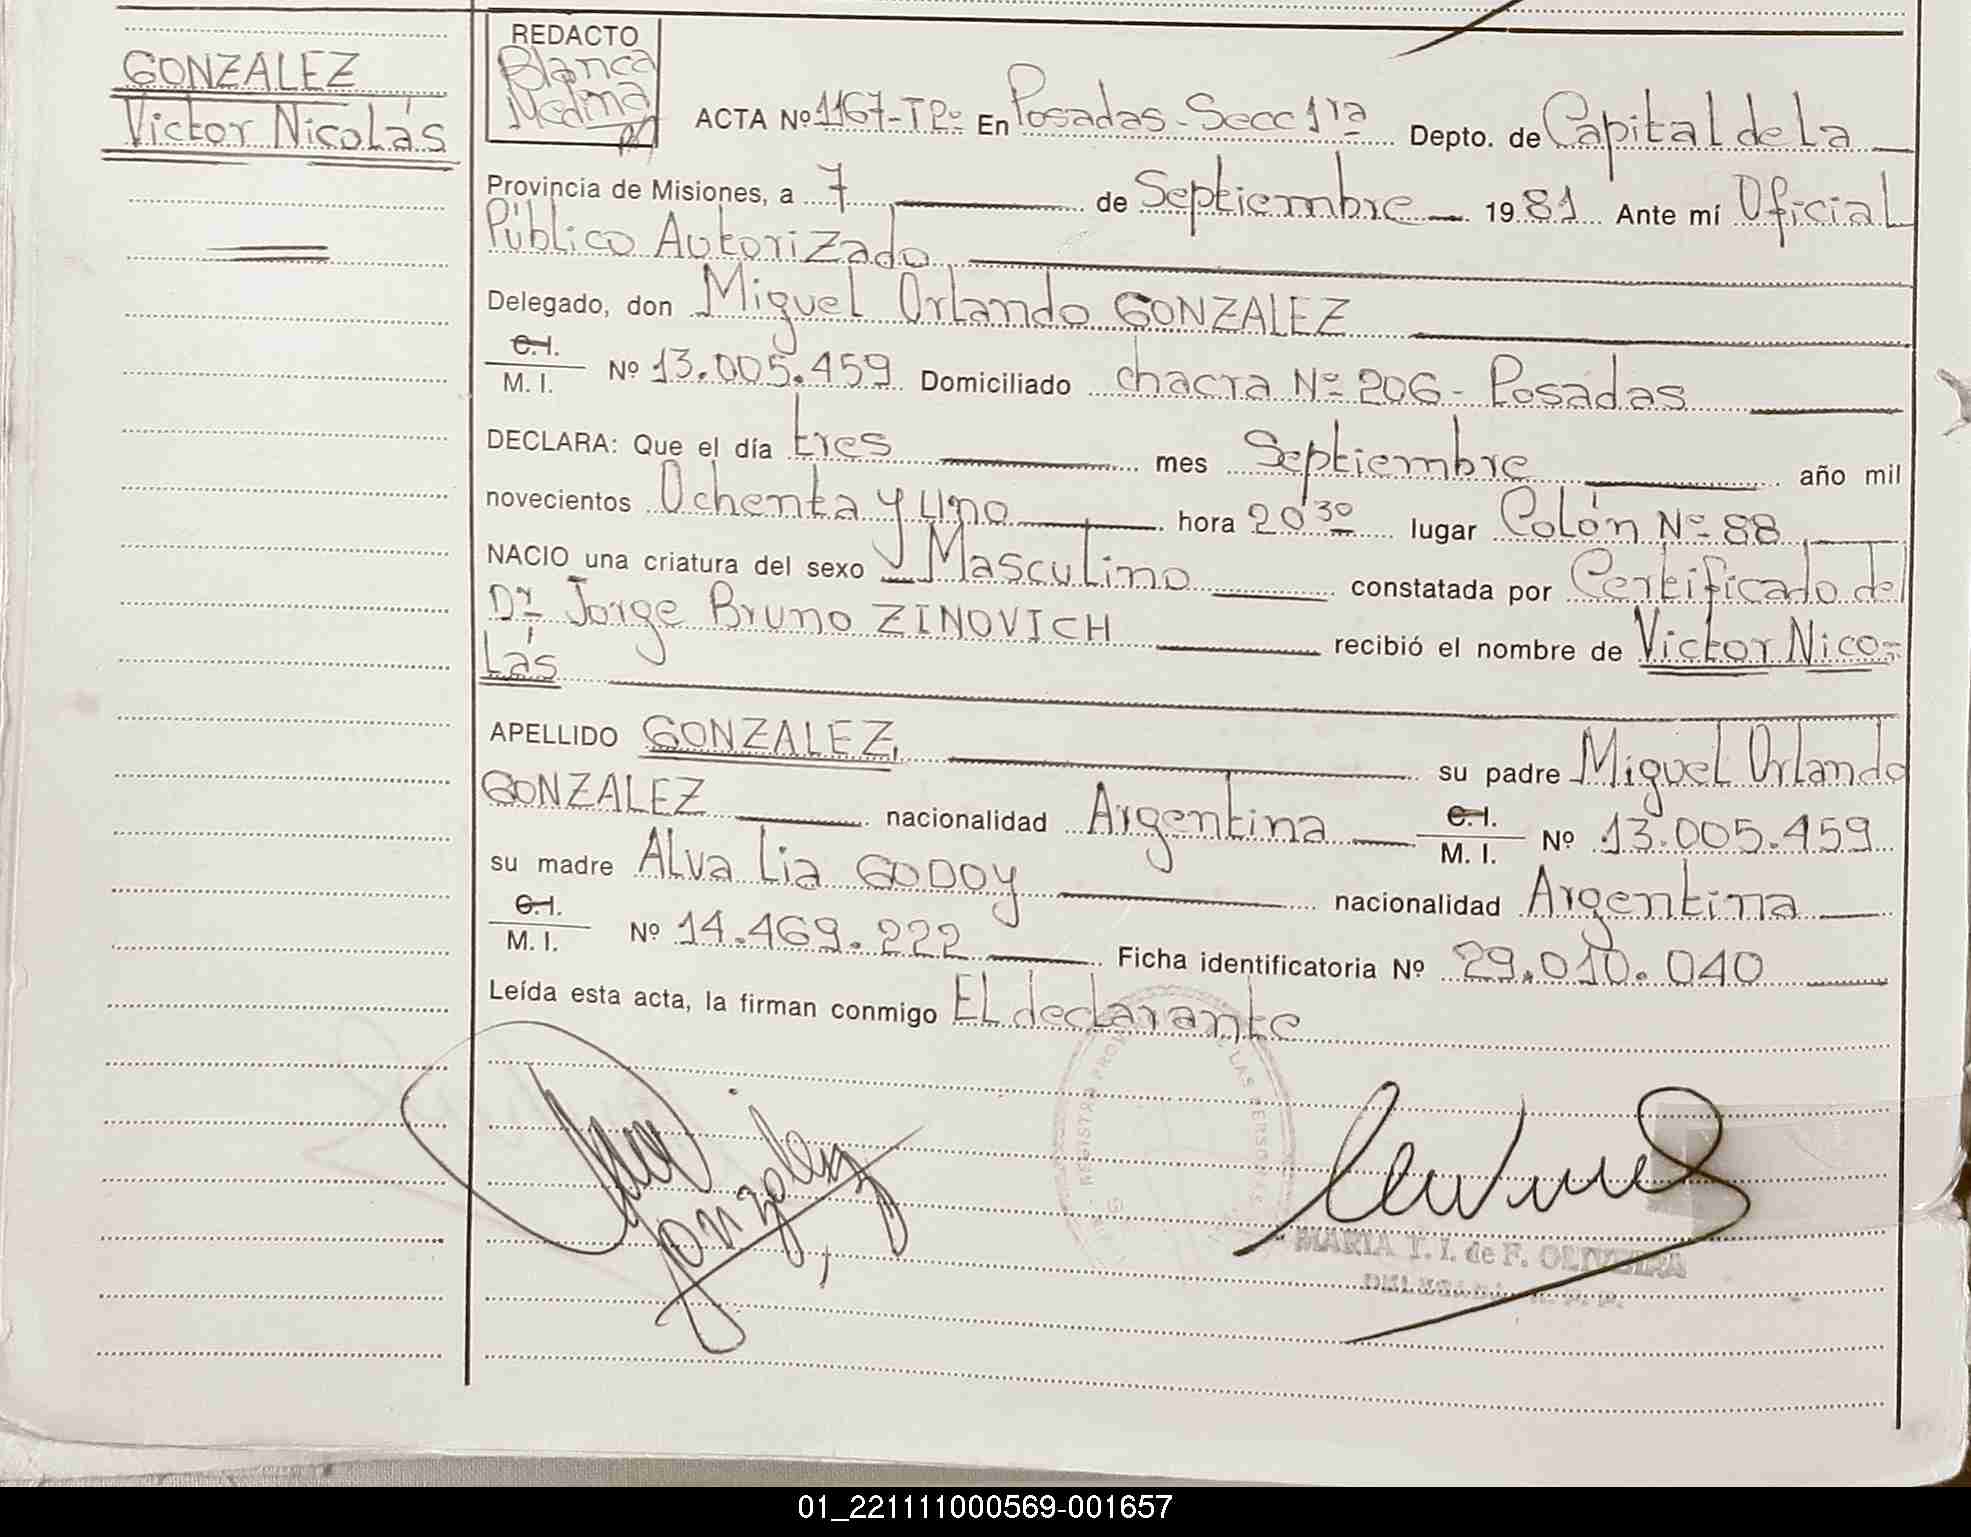 GONZALEZ
Victor Nicolás
REDACTO
Blanca
Medina
ACTA Nº 1167-Tº 2º En Posadas-Secc 1ra Depto. de Capital de La
Provincia de Misiones, a 7 de Septiembre 1981 Ante mí Oficial
Público Autorizado
Delegado, don Miguel Orlando GONZALEZ
C.I.
M. I. Nº 13.005.459 Domiciliado chacra Nº 206 - Posadas
DECLARA: Que el día tres mes Septiembre año mil
novecientos Ochenta y uno hora 20 30 lugar Colón Nº 88
NACIO una criatura del sexo Masculino constatada por Certificado del
Dr Jorge Bruno ZINOVICH recibió el nombre de Victor Nico-
Lás
APELLIDO GONZALEZ, su padre Miguel Orlando
GONZALEZ nacionalidad Argentina C.I.
M. I. Nº 13.005.459
su madre Alva Lia GODOY nacionalidad Argentina
C.I.
M. I. Nº 14.469.222 Ficha identificatoria Nº 29.010.040
Leída esta acta, la firman conmigo El declarante
Gonzalez
MARIA T. I. de F. OLIVEIRA
01_221111000569-001657